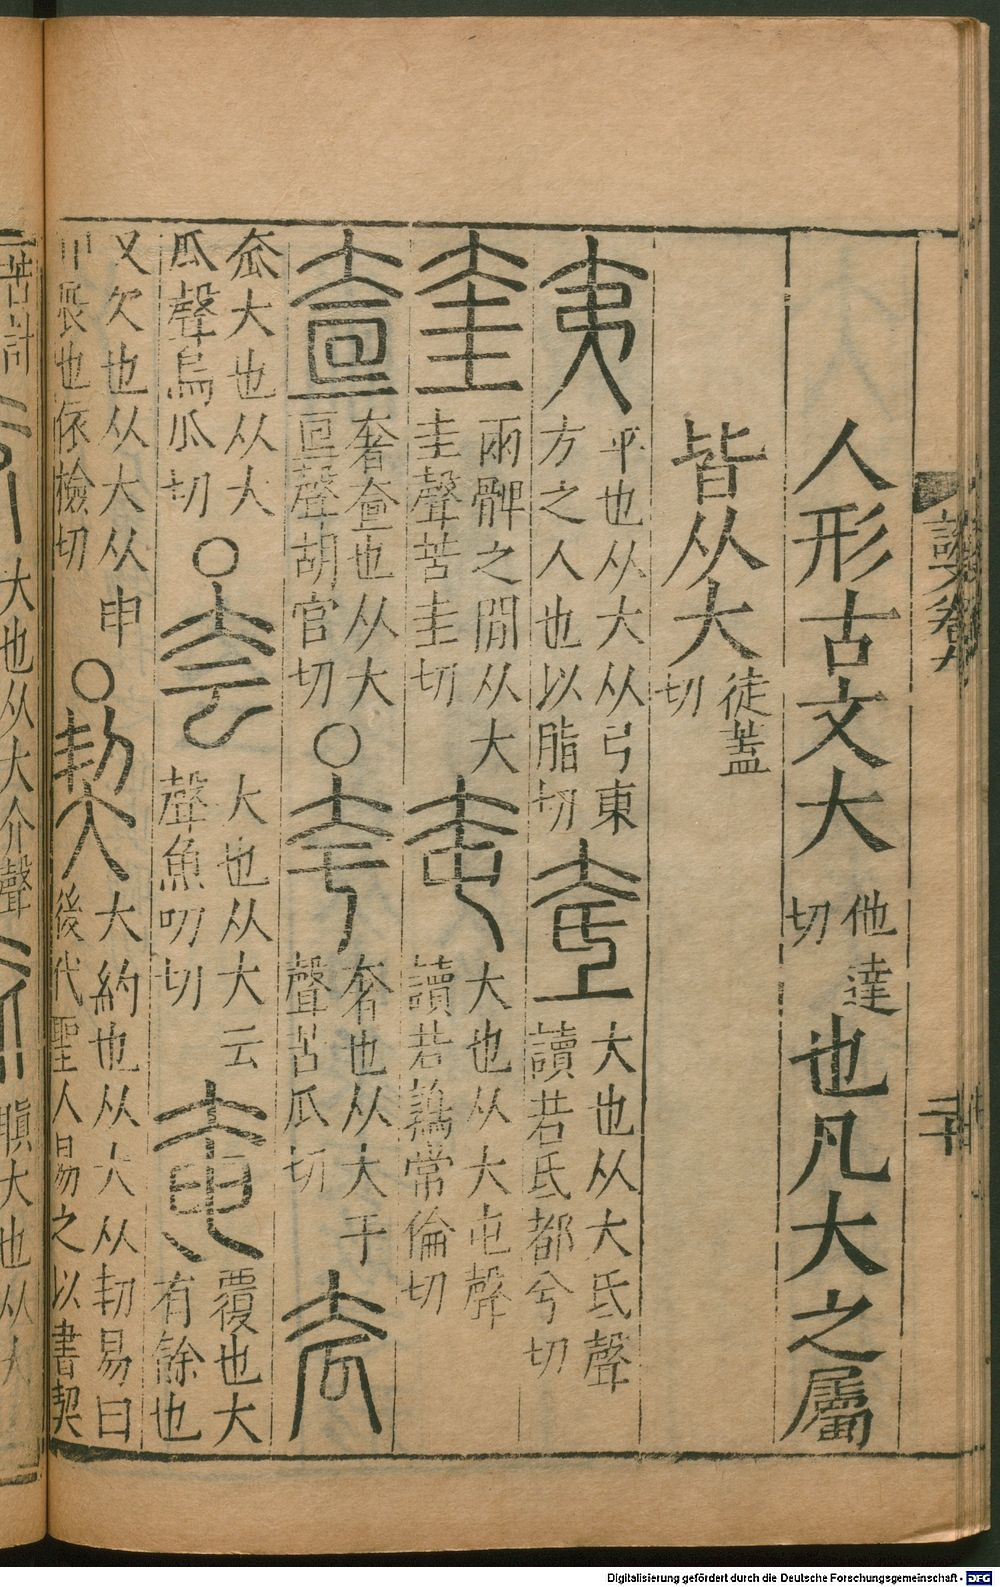 人形古文大他達切也凡大之屬
皆从大徒蓋切
夷平也从大从弓東
方之人也以脂切
奃大也从大氐聲
讀若氐都兮切
奎兩髀之閒从大
圭聲苦圭切
奄大也从大屯聲
讀若鶉常倫切
查奢查也从大
亘聲胡官切
○夸奢也从大于
聲苦瓜切
㚎大也从大
瓜聲烏瓜切
○夽大也从大云
聲魚吻切
奄覆也大
有餘也
又欠也从大从申
申展也依檢切
○契大約也从大从㓞易曰
後代聖人易之以書契
苦計
大也从大介聲
瞋大也从大
二十
Digitalisierung gefördert durch die Deutsche Forschungsgemeinschaft - DFG